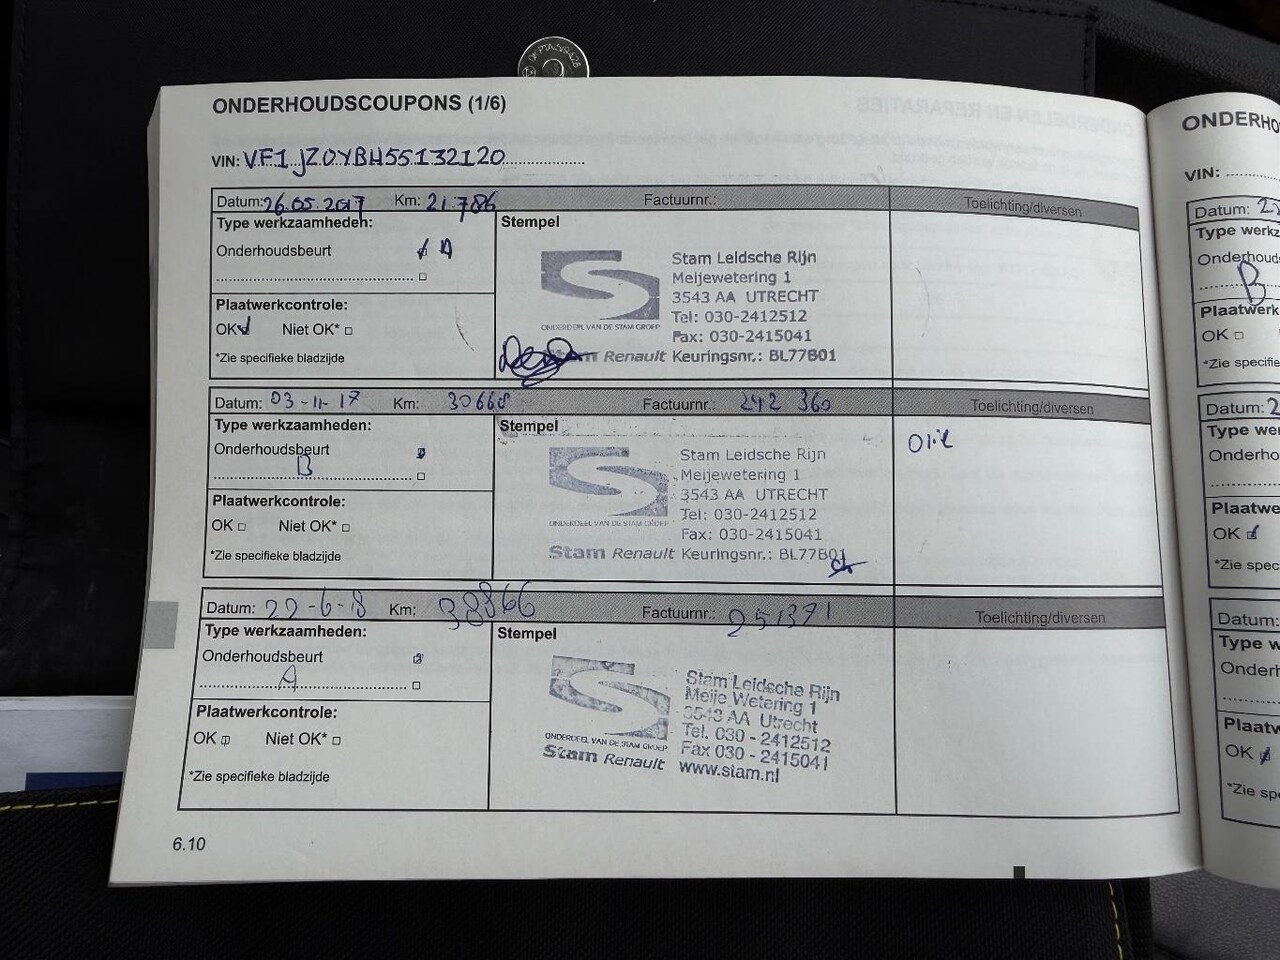 ONDERHOUDSCOUPONS (1/6)
VIN: VF1JZ0YBH55132120
Datum: 26.05.2017 Km: 21.786 Factuurnr.: Toelichting/diversen
Type werkzaamheden:
Onderhoudsbeurt A
Plaatwerkcontrole:
OK Niet OK*
*Zie specifieke bladzijde
Stempel
Stam Leidsche Rijn
Meijewetering 1
3543 AA UTRECHT
Tel: 030-2412512
Fax: 030-2415041
ONDERDEEL VAN DE STAM GROEP
Stam Renault Keuringsnr.: BL77B01
Datum: 03-11-17 Km: 30668 Factuurnr.: 242 360 Toelichting/diversen
Type werkzaamheden:
Onderhoudsbeurt
B
Plaatwerkcontrole:
OK Niet OK*
*Zie specifieke bladzijde
Stempel
Stam Leidsche Rijn
Meijewetering 1
3543 AA UTRECHT
Tel: 030-2412512
Fax: 030-2415041
ONDERDEEL VAN DE STAM GROEP
Stam Renault Keuringsnr.: BL77B01
Olie
Datum: 22-6-18 Km: 38866 Factuurnr.: 251371 Toelichting/diversen
Type werkzaamheden:
Onderhoudsbeurt
A
Plaatwerkcontrole:
OK Niet OK*
*Zie specifieke bladzijde
Stempel
Stam Leidsche Rijn
Meije Wetering 1
3543 AA Utrecht
Tel. 030 - 2412512
Fax 030 - 2415041
www.stam.nl
ONDERDEEL VAN DE STAM GROEP
Stam Renault
6.10
ONDERHO
VIN:
Datum: 2
Type werkz
Onderhouds
B
Plaatwerk
OK
*Zie specifie
Datum: 2
Type wer
Onderho
Plaatwe
OK
*Zie spec
Datum:
Type w
Onderh
Plaatw
OK
*Zie sp